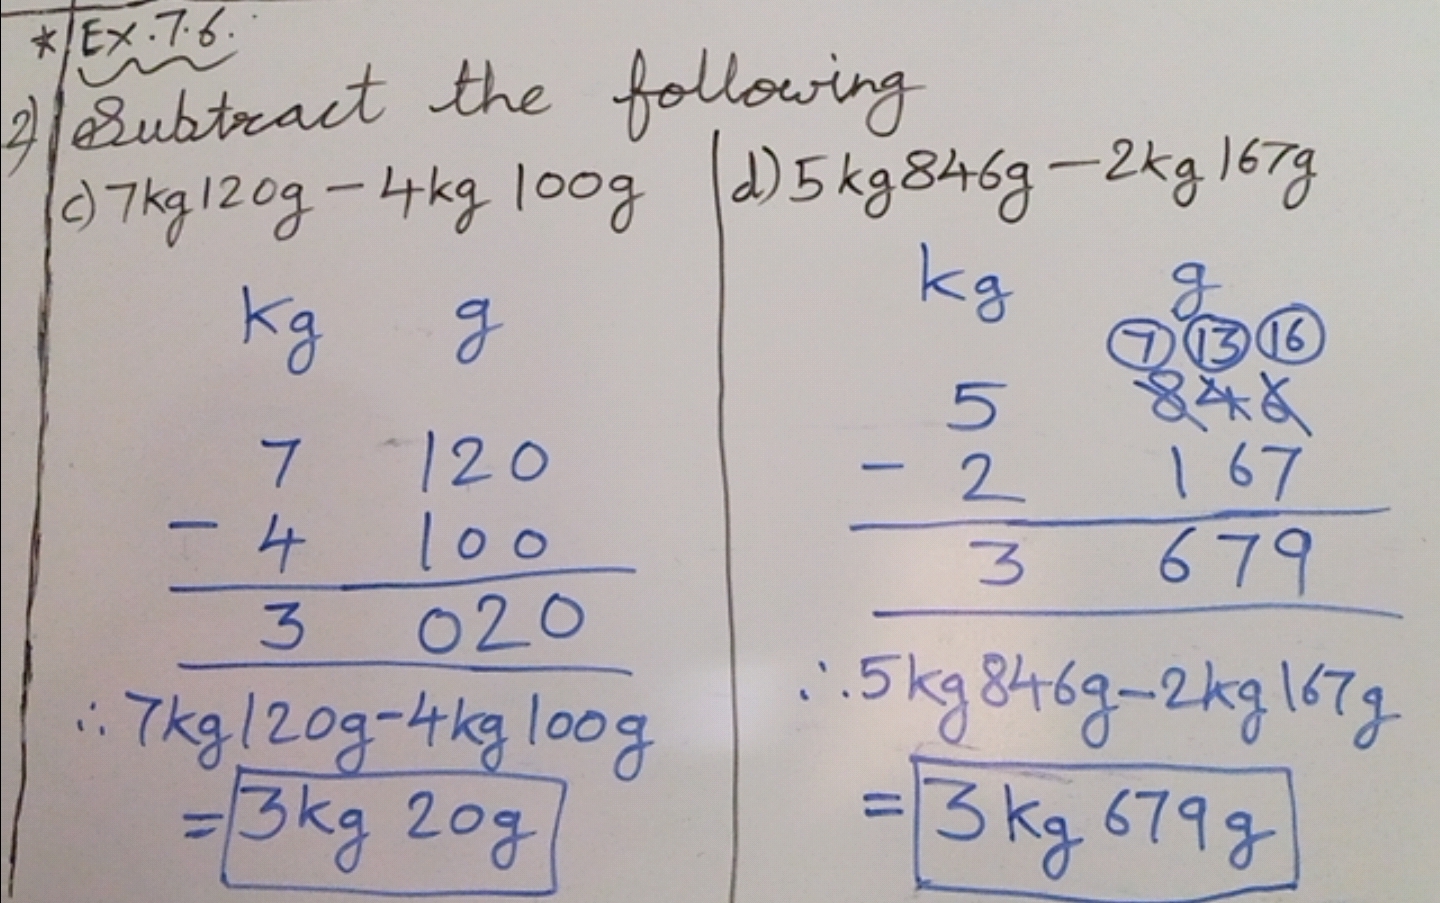 * Ex.7.6.
2) Subtract the following
c) 7kg120g - 4kg 100g
kg g
7 120
- 4 100
3 020
∴ 7kg120g-4kg100g
= 3kg 20g
d) 5kg846g - 2kg167g
kg g
7 13 16
5 846
- 2 167
3 679
∴ 5kg846g-2kg167g
= 3kg 679g